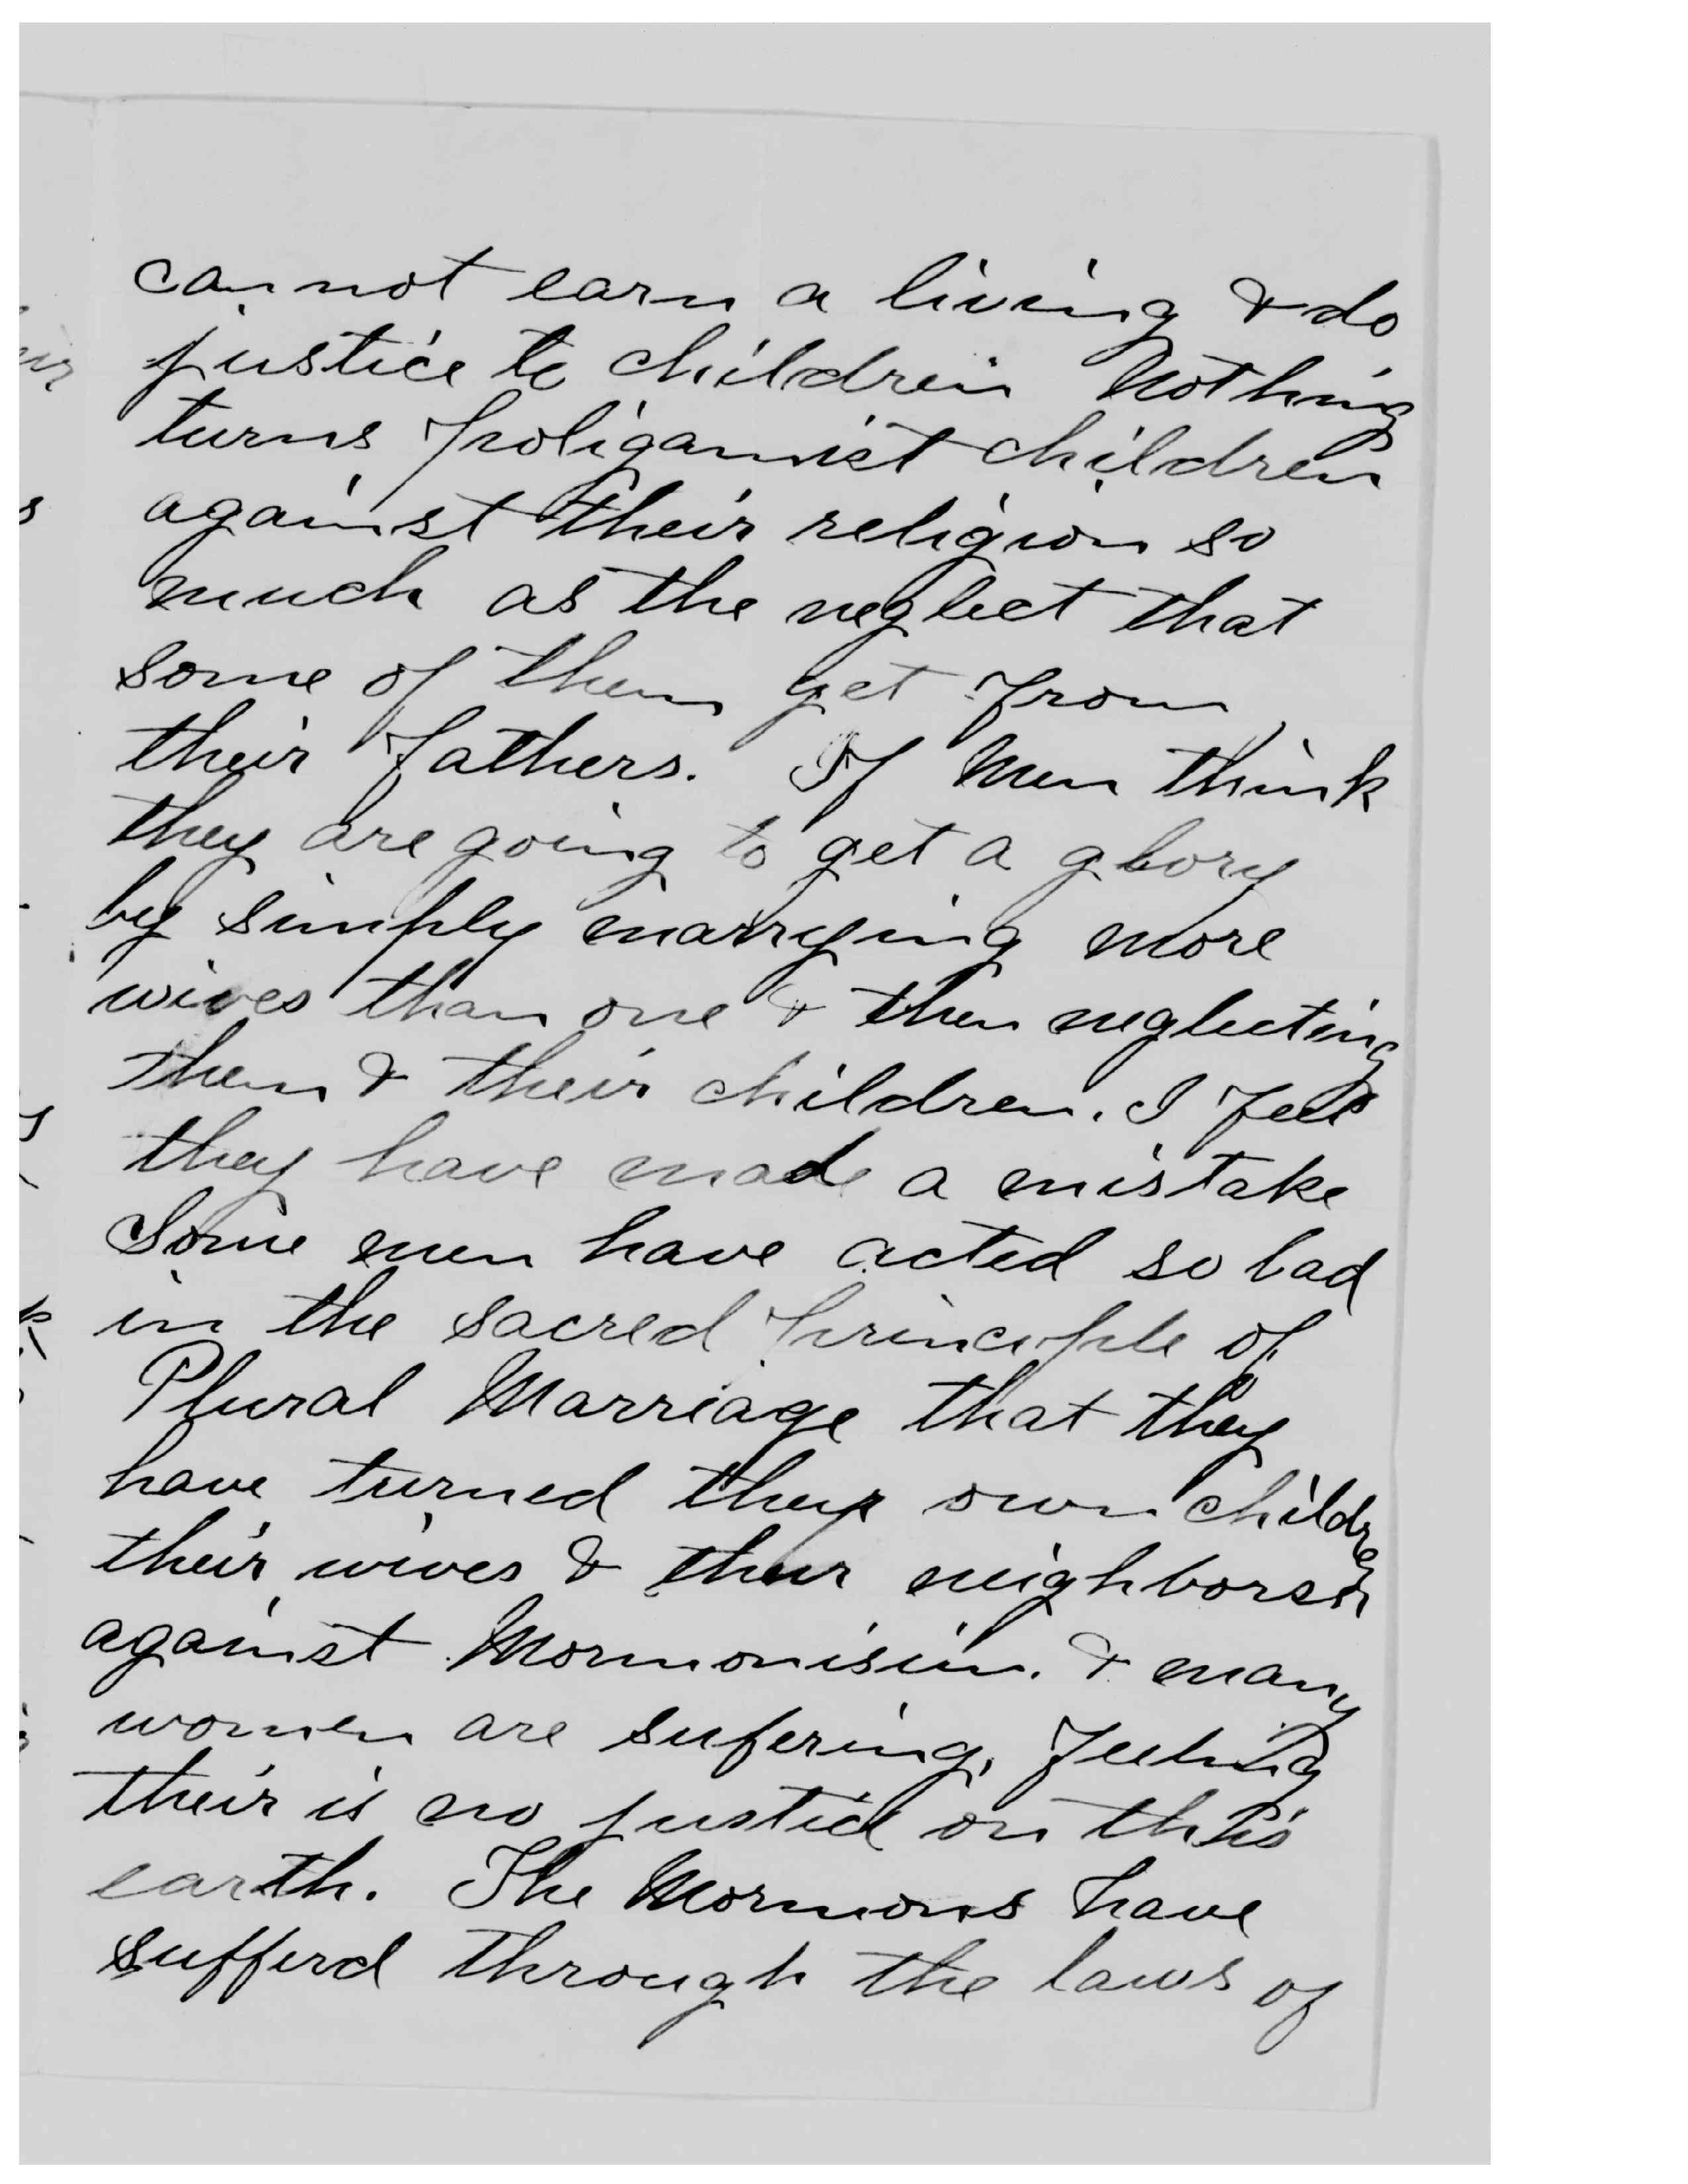 cannot earn a living & do
justice to children Nothing
turns poligamist children
against their religion so
much as the neglect that
some of them get from
their fathers. If Men think
they are going to get a glory
by simply marrying more
wives than one & then neglecting
them & their children. I feel
they have made a mistake
Some men have acted so bad
in the sacred principle of
Plural Marriage that they
have turned their own children
their wives & their neighbors
against Mormonisim. & many
women are sufering, feeling
their is no justice on this
earth. The Mormons have
sufferd through the laws of